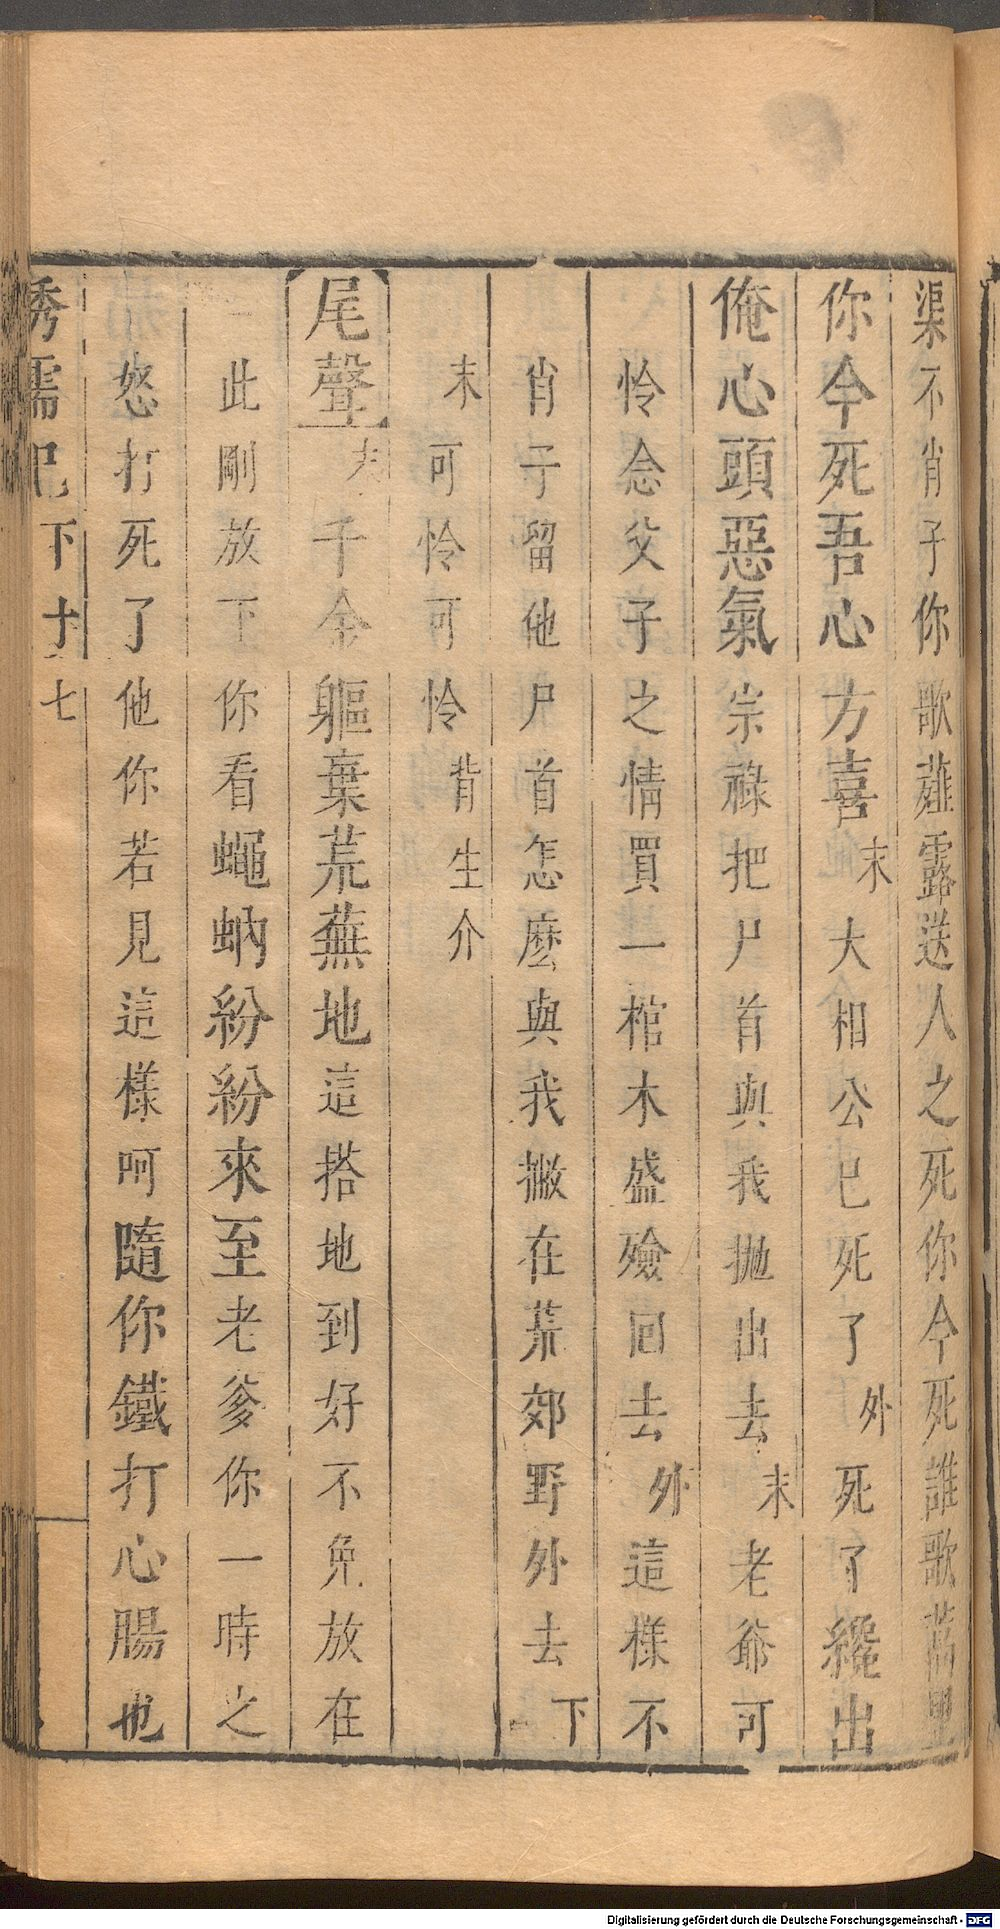 渠不肖子你歌薤露送人之死你今死誰歌蒿里
你今死吾心方喜末大相公已死了外死了纔出
俺心頭惡氣宗祿把尸首與我拋出去末老爺可
憐念父子之情買一棺木盛殮回去外這樣不
肖子留他尸首怎麽與我撇在荒郊野外去下
末可憐可憐背生介
尾聲末千金軀棄荒蕪地這搭地到好不免放在
此剛放下你看蠅蚋紛紛來至老爹你一時之
怒打死了他你若見這樣呵隨你鐵打心腸也
繡襦記下十七
Digitalisierung gefördert durch die Deutsche Forschungsgemeinschaft - DFG